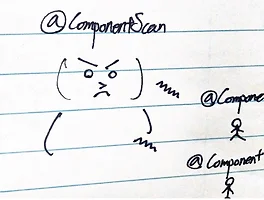 @ComponentScan
@Compone
@Component